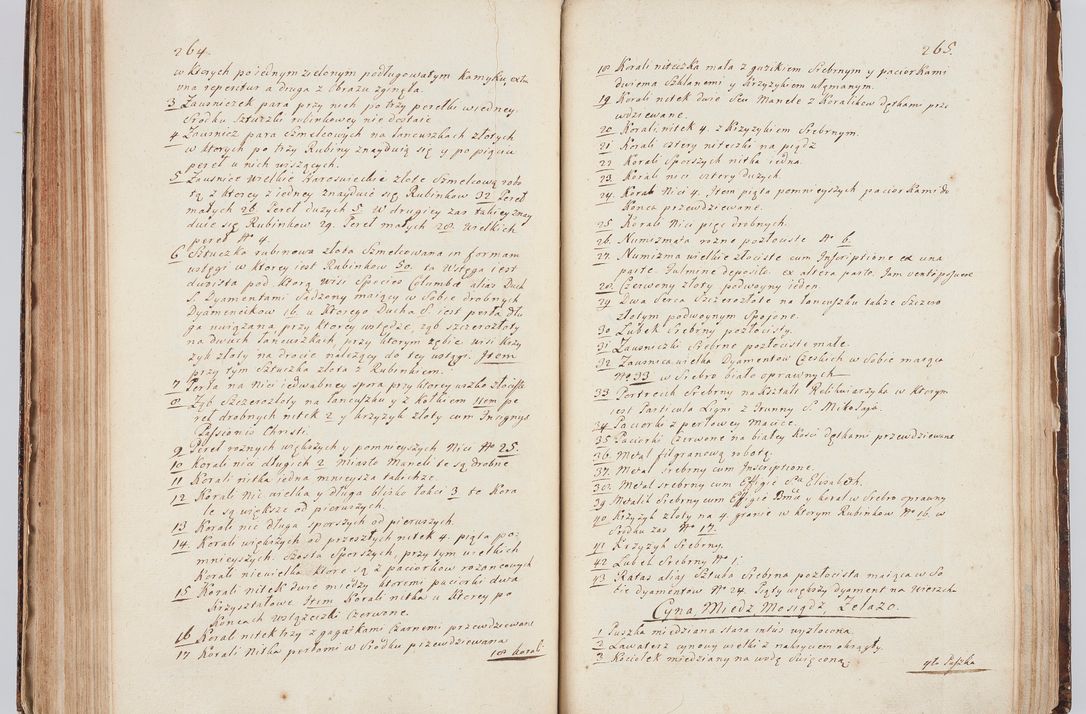 264.
w ktorych po iednym zielonym podługowatym kamyku, ex his
una reperitur a druga z Obrazu zginęła.
3 Zausniczek para przy nich po trzy perełki w iedney
Srodku Sztuczki rubinkowey nie dostaie
4 Zausnic para Szmelcowych na łancuszkach złotych
w ktorych po trzy Rubiny znayduią się y po pięciu
pereł u nich wiszących.
5 Zausnice Wielkie złote Szmelcową robo
tą z ktorey z iedney znayduie się Rubinkow 32 Pereł
małych 28 Pereł dużych 5. w drugiey zas takiey znay
duie się Rubinkow 29. Pereł małych 28. wielkich
pereł No 4.
6 Sztuczka rubinowa złota Szmelcowana in formam
wstęgi w ktorey iest Rubinkow 50. ta Wstęga iest
dugista pod ktorą wisi Species Columbæ alias Duch
S. Dyamentami Sadzony maiący w Sobie drobnych
Dyamencikow 16. u ktorego Ducha S. iest perła dłu
ga uwiązana, przy ktorey wstędze, ząb szczerozłoty
na dwuch łancuszkach, przy ktorym zębie wisi krzy
żyk złoty na drocie należący do tey wstęgi. Item
przy tym Sztuczka złota z Rubinkiem.
7 Perła na Nici iedwabney spora przy ktorey uszko złociste
8 Ząb Szczerozłoty na łancuszku y z kołkiem Item pe
reł drobnych nitek 2 y krzyżyk złoty cum Insignys
Passionis Christi
9 Pereł roznych większych y pomnieyszych Nici No 25.
10 Korali nici długich 2 Miasto Maneli te są drobne
11 Korali nitka iedna mnieysza takichże.
12 Korali Nic wielka y długa blisko łokci 3 te Kora
le są większe od pierwszych.
13 Korali nic długa sporszych od pierwszych.
14. Korali większych od przeszłych nitek 4. piąta po:
mnieyszych Szosta Sporszych, przy tym wielkich
Korali niewielka ktore są z paciorkow rożancowych
15 Korali nitek dwie między ktoremi paciorki dwa
Krzyształowe Item Korali nitka u ktorey po
Koncach wstążeczki Czerwone.
16 Korali nitek trzy z gagatkami Czarnemi przewdziewane
17. Korali Nitka perłami w Srodku przewdziewana
18 Korali
265.
18 Korali niteczka mała z guzikiem Srebrnym y paciorkami
dwiema Szklanemi y Krzyżykiem ułamanym.
19. Korali nitek dwie Seu Manele z Koralikow Dętkami prze
wdziewane.
20 Korali nitek 4. z Krzyżykiem Srebrnym.
21 Korali cztery niteczki na piądz
22 Korali Sporszych nitka iedna.
23. Korali nici cztery dużych.
24. Korali Nici 4. Item piąta pomnieyszych paciorkami do
Konca przewdziewane.
25 Korali Nici pięc drobnych.
26. Numizmata rozne pozłociste No 6.
27. Numizma wielkie złociste cum Inscriptione ex una
parte. fulmine deposito. ex altera parte. Jam vento
28. Czerwony złoty podwoyny ieden.
29 Dwa Serca Szczerozłote na łancuszku także Szczero
złotym podwoynym Spoione.
30. Lubek Srebrny pozłocisty.
31 Zausniczki Srebrne pozłociste małe.
32. Zausnica wielka Dyamentow Czeskich w Sobie maiąca
No 33 w Srebro biało oprawnych
33 Portrecik Srebrny na Kształt Relikwiarzyka w ktorym
iest Particula Ligni z Trunny S. Mikołaia.
34. Paciorki z perłowey Macice.
35 Paciorki Czerwone na białey Kosci Dętkami przewdziewane
36. Metal filgranową robotą.
37. Metal srebrny cum Inscriptione.
38. Metal srebrny cum Effigie Stæ Elisabeth.
39 Metalik Srebrny cum Effigie Bmæ y koral w Srebro oprawny
40 Krzyżyk złoty na 4 granie w ktorym Rubinkow No 16. w
Srodku zas No 17.
41 Krzyżyk Srebrny.
42 Lubek Srebrny No 1.
43 Ratas alias Sztuba Srebrna pozłocista maiąca w So
bie dyamentow No 24. Piąty większy dyament na Wierzchu
Cyna, Miedz Mosiądz, Żelazo.
1 Puszka miedziana stara intus wyzłocona.
2 Lawaterz cynowy wielki z nakryciem okrągły.
3 Kociołek miedziany na wodę Swięconą;
4ta Puszka